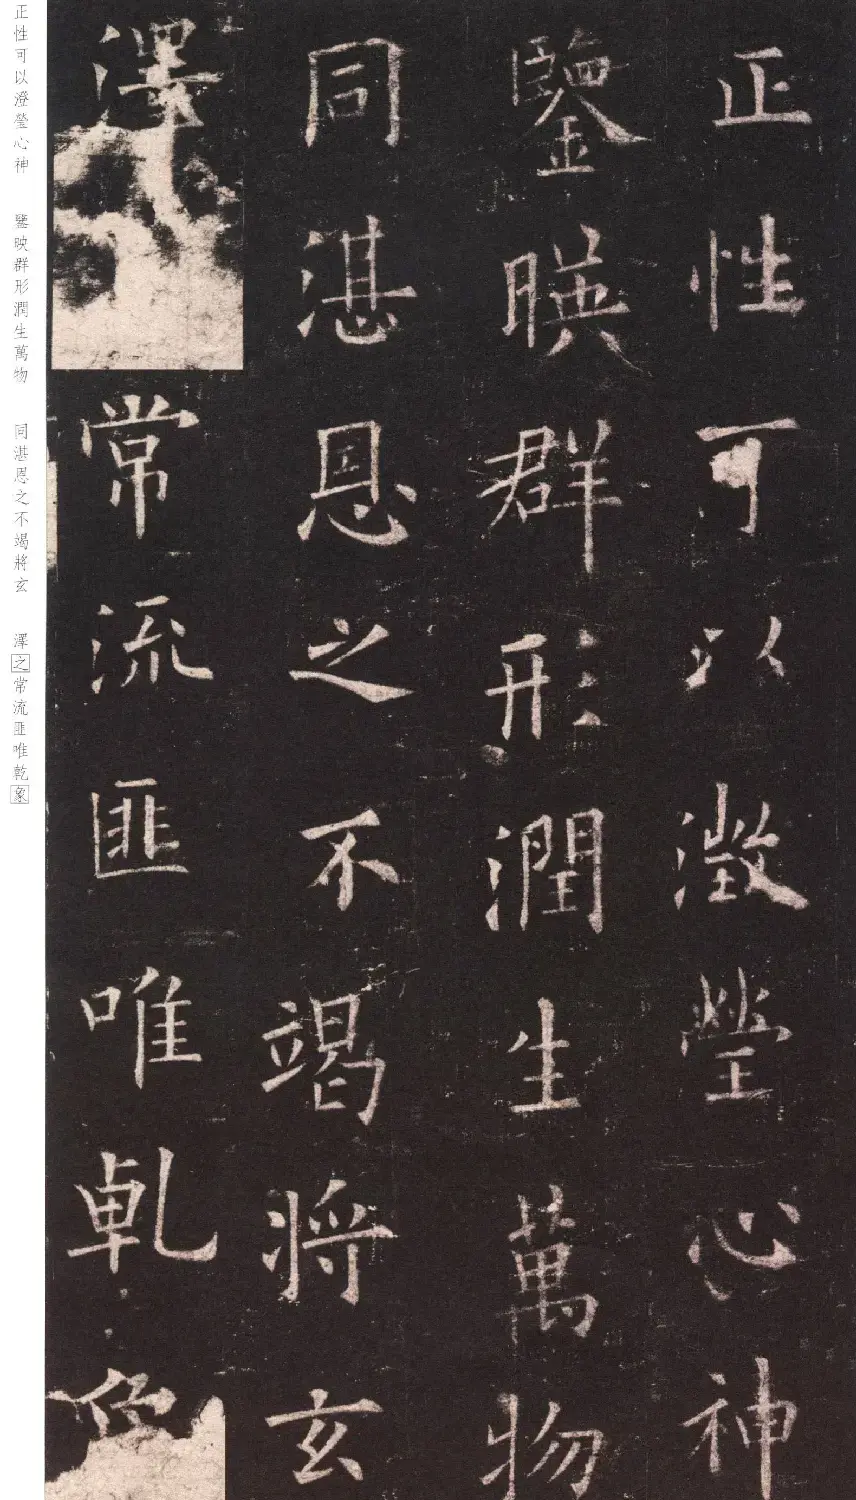 正性可以澂瑩心神
鑒暎群形潤生萬物
同湛恩之不竭將玄
澤常流匪唯乹象
正性可以澄瑩心神 鑒映群形潤生萬物 同湛恩之不竭將玄 澤之常流匪唯乾象